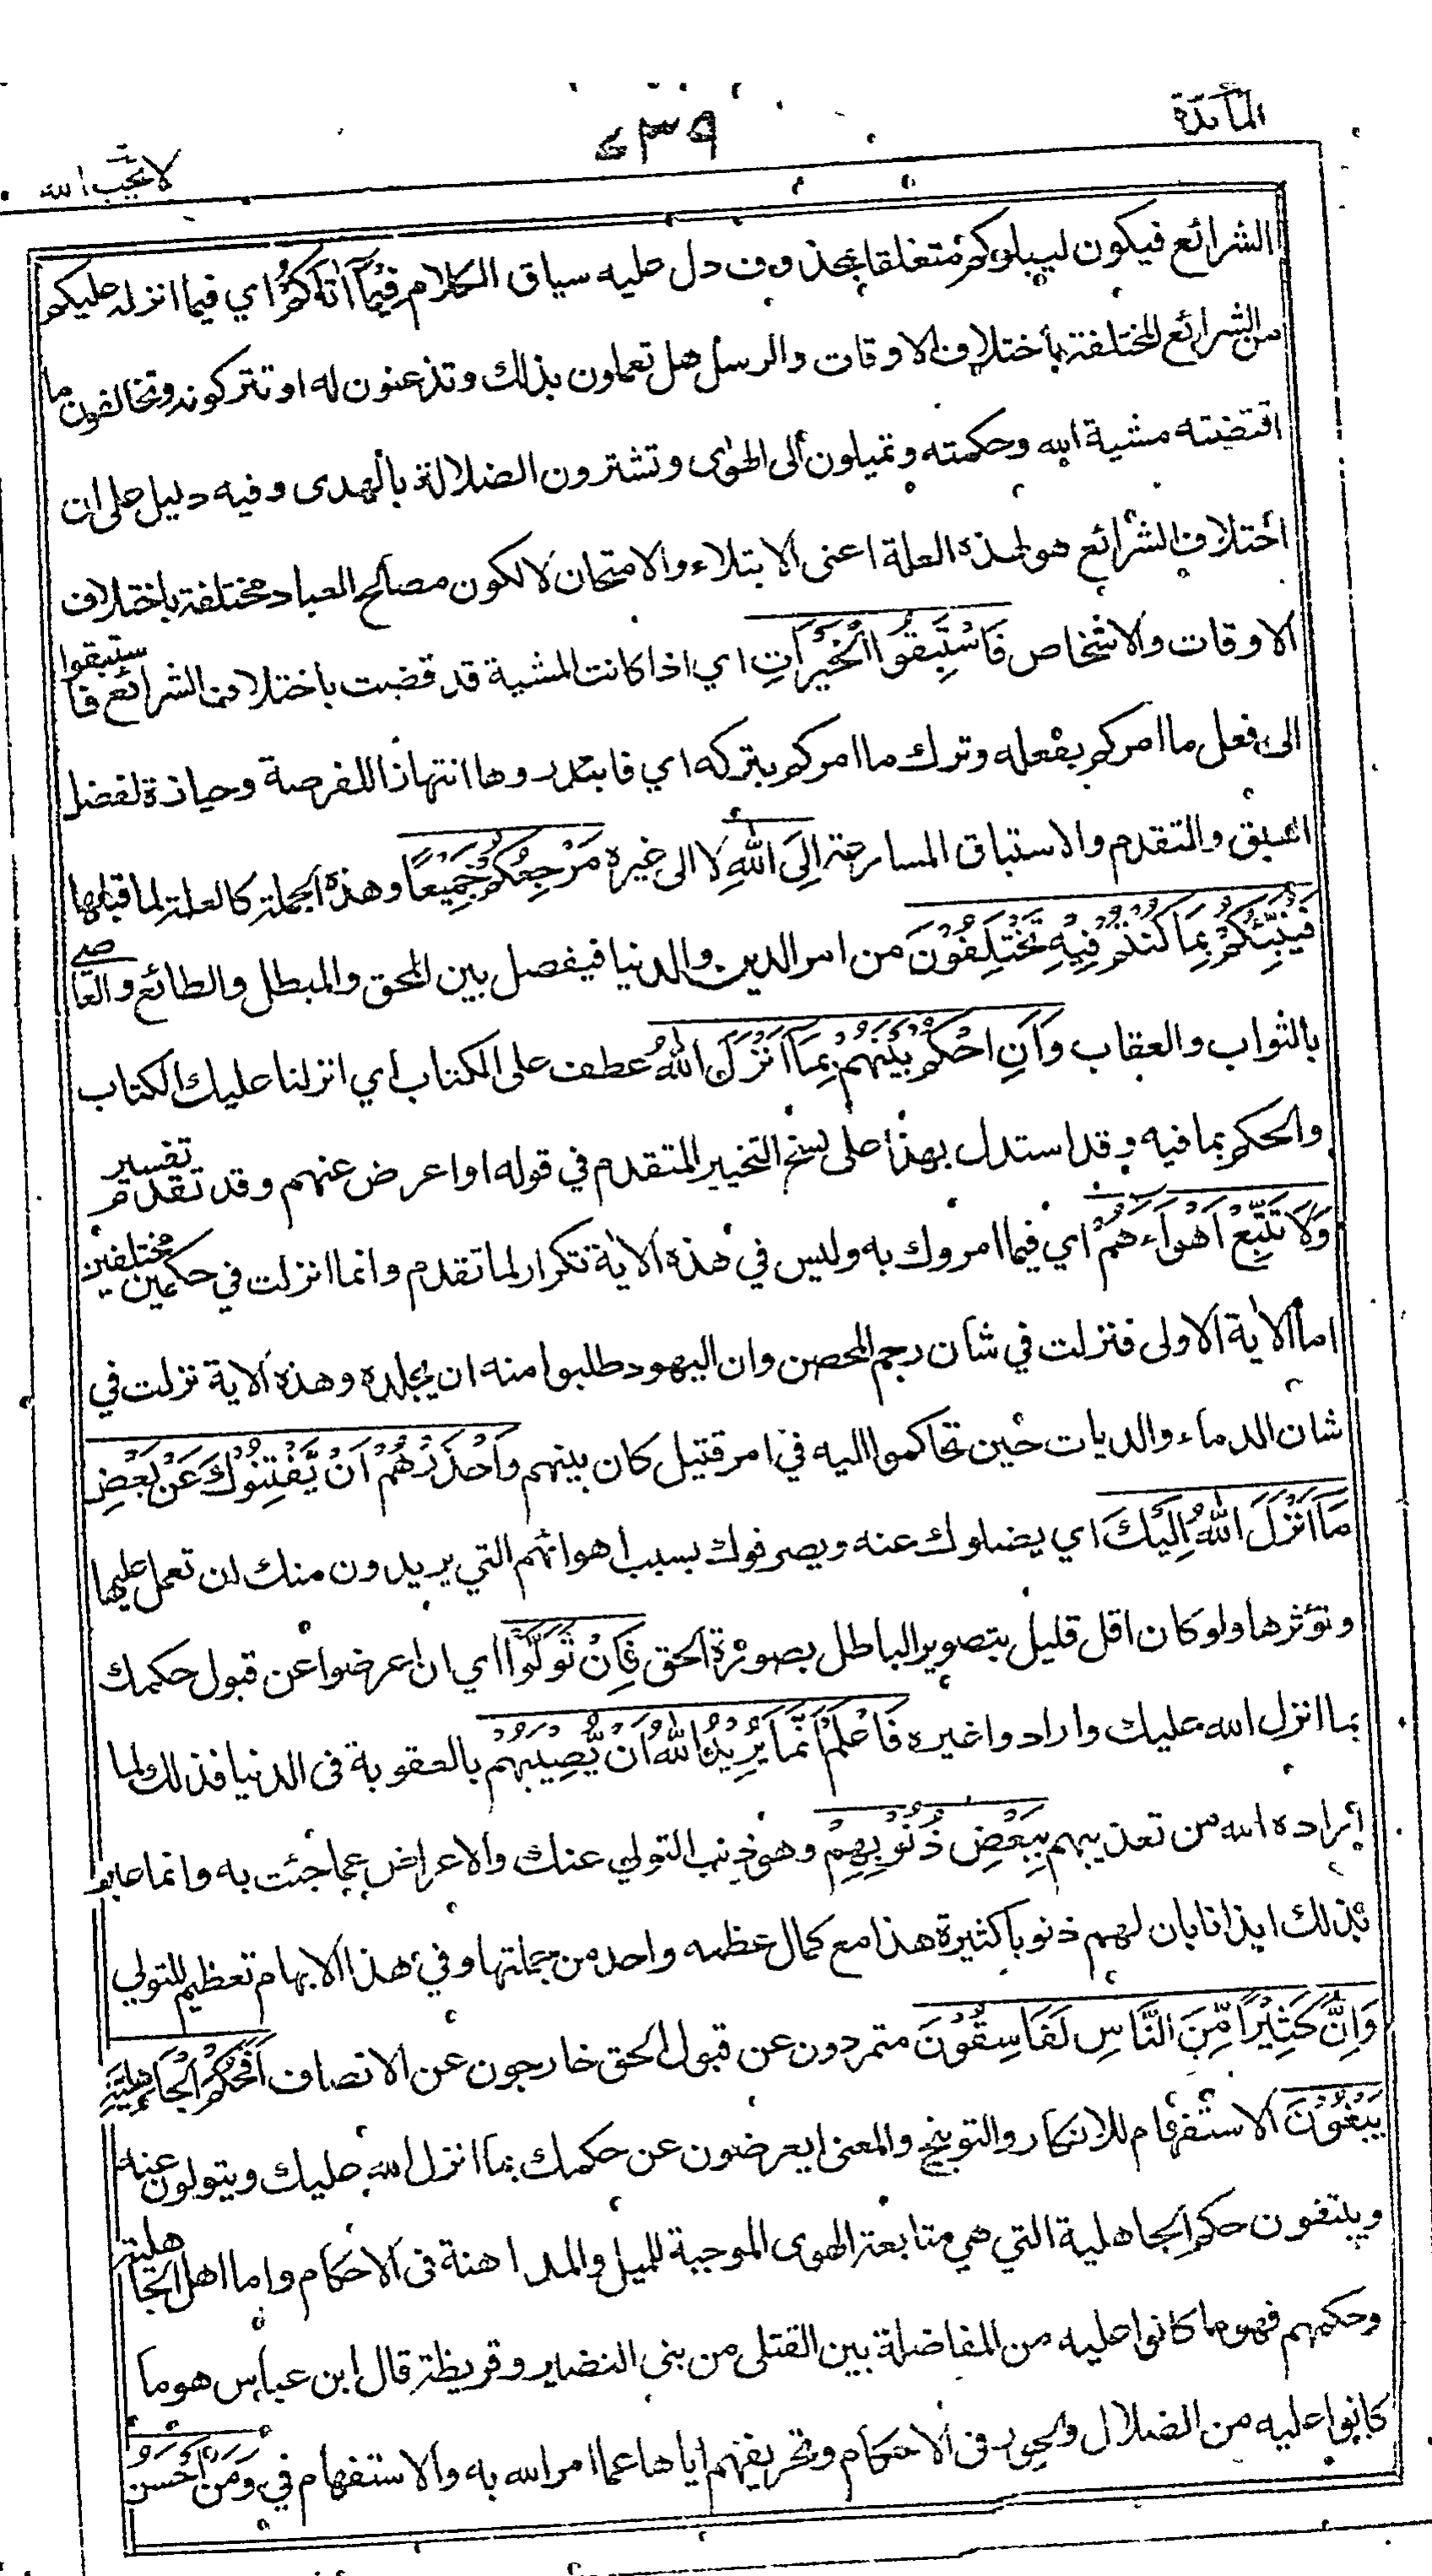 المأئدة
٧٣٩
لا يحب الله
الشرائع فيكون ليبلوكم متعلقا بمحذوف دل عليه سياق الكلام فِيْمَا اٰتٰىكُمْ اي فيما انزله عليكم
من الشرائع المختلفة بأختلاف الاوقات والرسل هل تعملون بذلك وتذعنون له او تتركونه وتخالفون ما
اقتضته مشية الله وحكمته وتميلون ألى الهوى وتشترون الضلالة بألهدى وفيه دليل على ان
أختلاف الشرائع هو لهذه العلة اعنى الابتلاء والامتحان لا لكون مصالح العباد مختلفة باختلاف
الاوقات والاشخاص فَاسْتَبِقُوا الْخَيْرَاتِ اي اذا كانت المشية قد قضت باختلاف الشرائع فاستبقوا
الى فعل ما امركم بفعله وترك ما امركم بتركه اي فابتدروها انتهازا للفرصة وحيازة لفضل
السبق والتقدم والاستباق المسارعة اِلَى اللّٰهِ لا الى غيره مَرْجِعُكُمْ جَمِيْعًا وهذه الجملة كالعلة لما قبلها
فَيُنَبِّئُكُمْ بِمَا كُنْتُمْ فِيْهِ تَخْتَلِفُوْنَ من امر الدين والدنيا فيفصل بين المحق والمبطل والطائع والعاصي
بالثواب والعقاب وَاَنِ احْكُمْ بَيْنَهُمْ بِمَا اَنْزَلَ اللّٰهُ عطف على الكتاب اي انزلنا عليك الكتاب
والحكم بما فيه وقد استدل بهذا على نسخ التخيير المتقدم في قوله او اعرض عنهم وقد تقدم تفسير
وَلَا تَتَّبِعْ اَهْوَاءَهُمْ اي فيما امروك به وليس في هذه الاية تكرار لما تقدم وانما انزلت في حكمين مختلفين
اما ألاية الاولى فنزلت في شأن رجم المحصن وان اليهود طلبوا منه ان يجلده وهذه الاية نزلت في
شان الدماء والديات حين تحاكموا اليه في امر قتيل كان بينهم وَاحْذَرْهُمْ اَنْ يَّفْتِنُوْكَ عَنْ بَعْضِ
مَا اَنْزَلَ اللّٰهُ اِلَيْكَ اي يضلوك عنه ويصرفوك بسبب اهوائهم التي يريدون منك ان تعمل عليها
وتؤثرها ولو كان اقل قليل بتصوير الباطل بصورة الحق فَاِنْ تَوَلَّوْا اي ان اعرضوا عن قبول حكمك
بما انزل الله عليك وارادوا غيره فَاعْلَمْ اَنَّمَا يُرِيْدُ اللّٰهُ اَنْ يُّصِيْبَهُمْ بالعقوبة فى الدنيا فذلك لما
أراده الله من تعذيبهم بِبَعْضِ ذُنُوْبِهِمْ وهى ذنب التولي عنك والاعراض عما جئت به وانما عبر
بذلك ايذانا بان لهم ذنوبا كثيرة هذا مع كمال عظمه واحد من جملتها وفي هذا الابهام تعظيم للتولي
وَاِنَّ كَثِيْرًا مِّنَ النَّاسِ لَفَاسِقُوْنَ متمردون عن قبول الحق خارجون عن الانصاف اَفَحُكْمَ الْجَاهِلِيَّةِ
يَبْغُوْنَ الاستفهام للانكار والتوبيخ والمعنى ايعرضون عن حكمك بما انزل الله عليك ويتولون عنه
ويبتغون حكم الجاهلية التي هي متابعة الهوى الموجبة للميل والمداهنة فى الاحكام واما اهل الجاهلية
وحكمهم فهو ما كانوا عليه من المفاضلة بين القتلى من بنى النضير وقريظة قال ابن عباس هو ما
كانوا عليه من الضلال والجور فى الاحكام وتحريفهم اياها عما امر الله به والاستفهام في وَمَنْ اَحْسَنُ